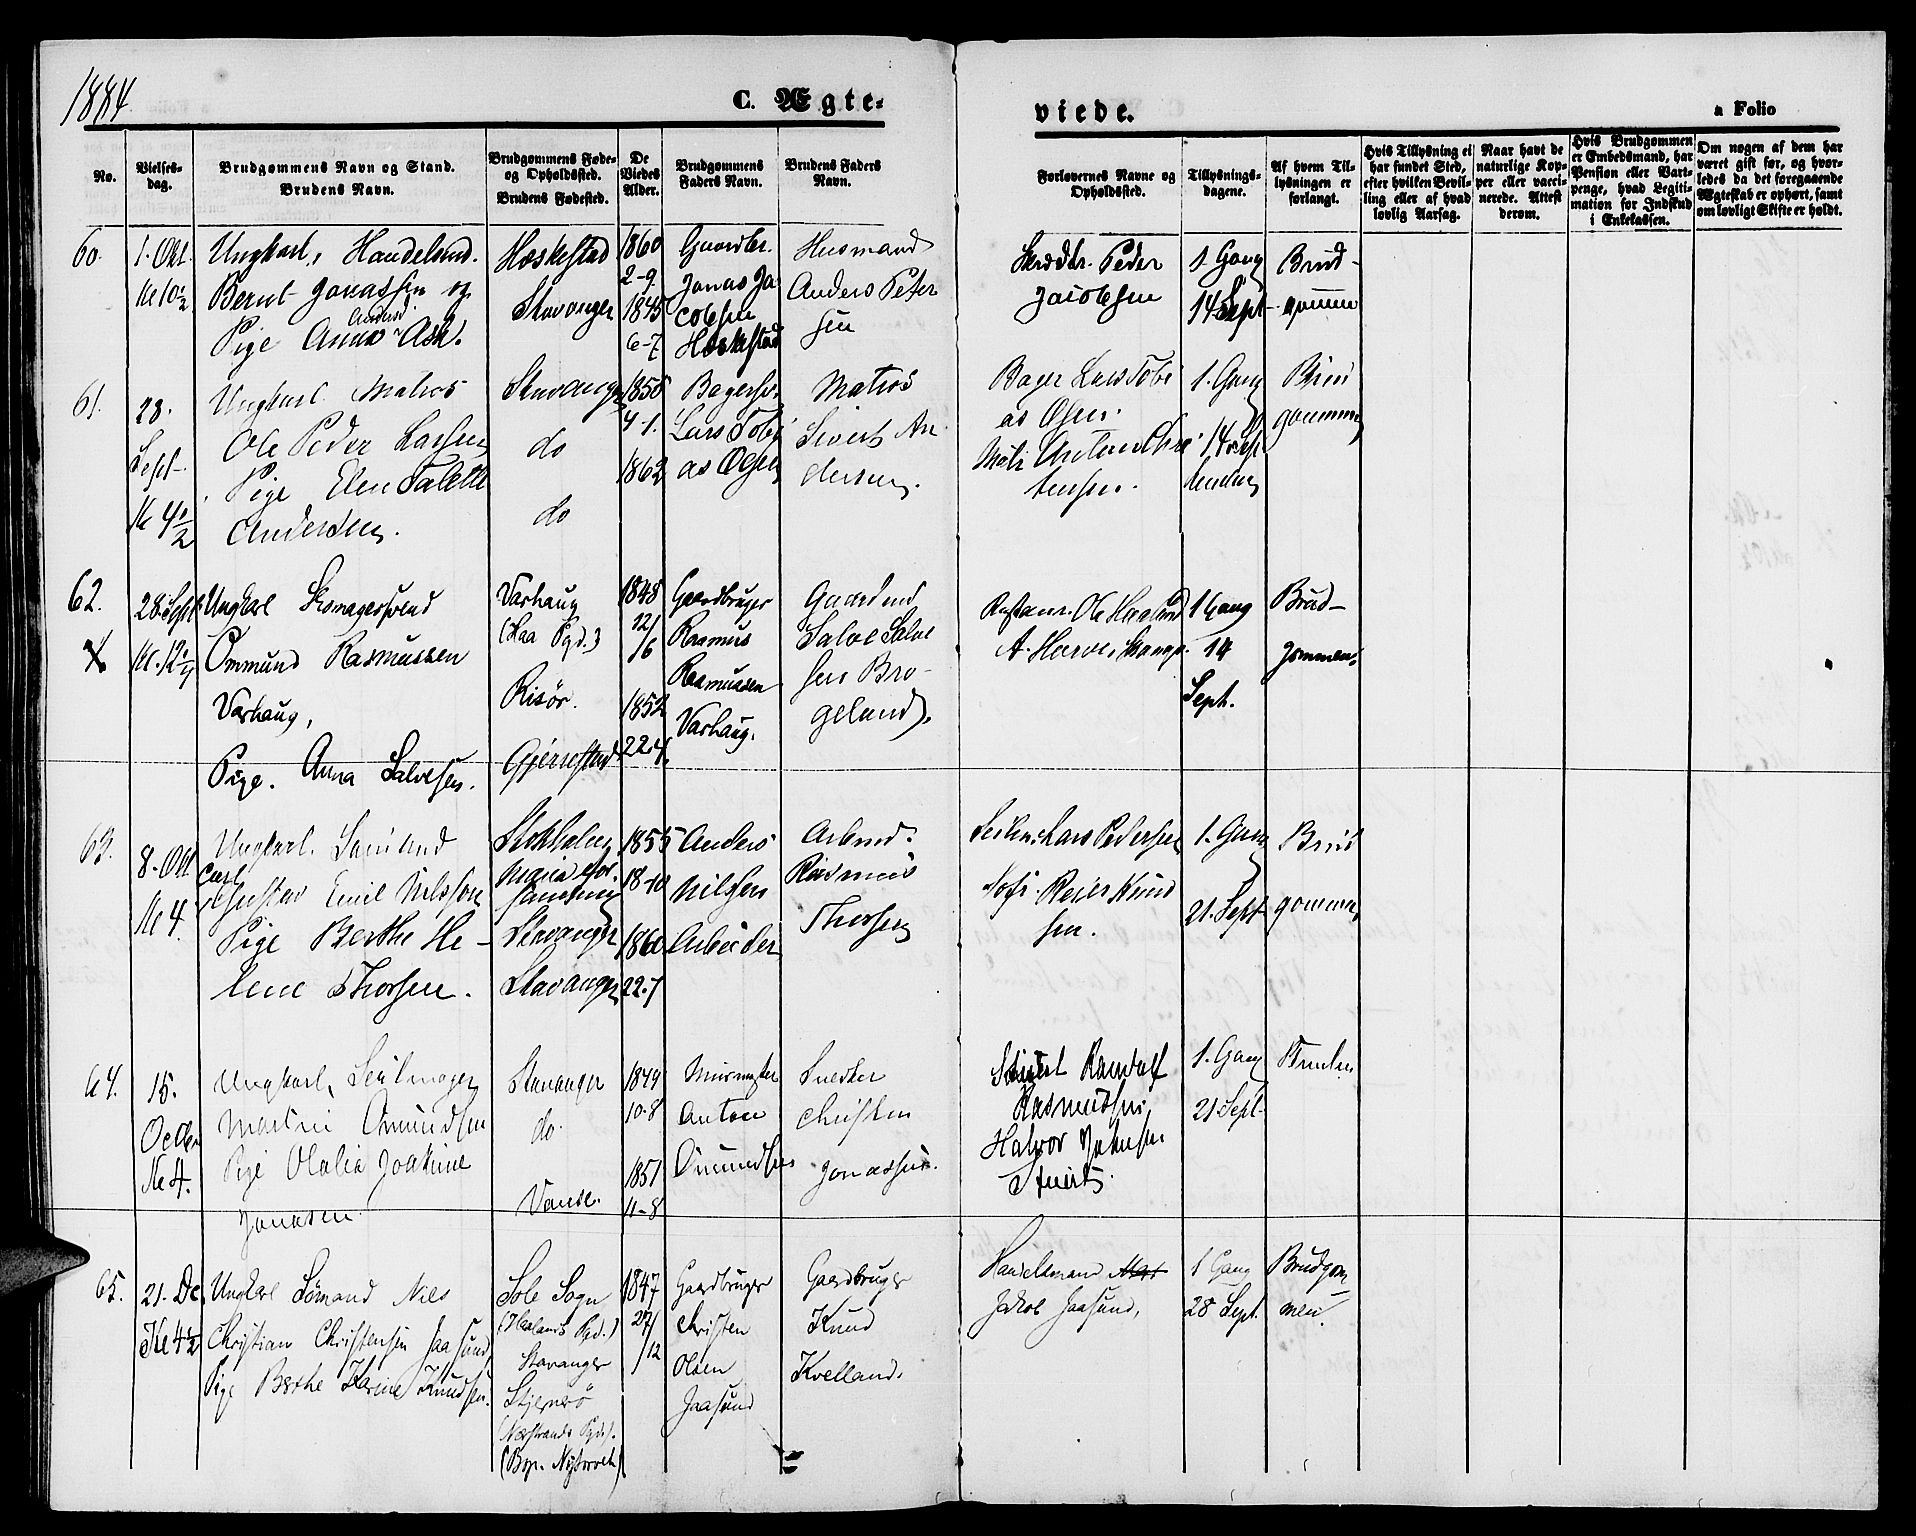 1884.
C. Ægte-
viede.
a Folio
No.
Vielses-
dag.
Brudgommens Navn og Stand.
Brudens Navn.
Brudgommens Føde-
og Opholdssted.
Brudens Fødested.
De
Viedes
Alder.
Brudgommens
Faders Navn.
Brudens Faders
Navn.
Forlovernes Navne og
Opholdssted.
Tillysnings-
dagene.
Af hvem Til-
lysningen er
forlangt.
Hvis Tillysning ei
har fundet Sted,
efter hvilken Bevil-
ling eller af hvad
lovlig Aarsag.
Naar havt de
naturlige Kop-
per eller vacci-
nerede. Attest
derom.
Hvis Brudgommen
er Embedsmand, har
Pension eller Vart-
penge, hvad Legiti-
mation for Indskud
i Enkekassen.
Om nogen af dem har
været gift før, og hvor-
ledes da det foregaaende
Ægteskab er ophørt, samt
om lovligt Skifte er holdt.
60.
1. Okt.
Kl 10½
Ungkarl, Handelsmd.
Bernt Jonassen og
Pige Anna Ask.
Heskestad
Stavanger
1860
2-9.
1845
6-7
Gaardbr.
Jonas Ja-
cobsen
Heskestad
Husmand
Anders Peter
sen
Skrædr. Peder
Jacobsen
1 Gang
14 Sept
Brud-
gommen
61.
28.
Sept
Kl 4½
Ungkarl Matros
Ole Peder Larsen
Pige Elen Talette
Andersen.
Stavanger
do
do
1858
4-1.
1862
Bagersv.
Lars Tobi
as Olsen
Matros
Sivert An
dersen.
Bager Lars Tobi
as Olsen
Mats Anton Chri
tensen.
1. Gang
14 Sept
Brud
gommen
62.
28 Sept
Kl. 12½
Ungkarl Skomagersvend
Ommund Rasmussen
Varhaug,
Pige. Anna Salvesen.
Varhaug
(Haa Pgd.)
Risör.
Gjerrestad
1848
12/6
1852
22-4.
Gaardbruger
Rasmus
Rasmussen
Varhaug.
Gaardmd
Salve Salve
sen Bro-
geland.
Restaur. Ole Haaland
1 Gang
14
Sept.
Brud-
gommen.
63.
8. Okt
Kl 4.
Ungkarl. Sømand
Carl
Gustav Emil Nilsson
Pige Berthe He-
lene Thorsen.
Stokholm
Maria
Stavanger
Stavanger
1855
18-10
1860
22-7
Anders
Nilsen
Arbeider
Arbmd.
Rasmus
Thorsen
Seilm. Lars Pedersen
Reier Knud
sen.
1. Gang
21. Sept
Brud
gommen
64.
15.
Octbr
Kl 4.
Ungkarl, Seilmager
Martin Omundsen
Pige Olalia Joakine
Jonasen
Stavanger
do.
Vanse.
1849
10-8
1851
11-8
Murmester
Anton
Omundsen
Snedker
Christen
Jonassen.
Stuert Randulf
Rasmussen,
Halvor Johnsen
Stuert.
1. Gang
21 Sept
Bruden
65.
21. Dc.
Kl 4½
Ungkarl Sømand Nils
Christian Christensen Jaasund,
Pige Berthe Karine Knudsen.
Sole Sogn
(Haalands Pgd.)
Stavanger
Stjernerö
(Nerstrands Pgd.
1847
27/12
Gaardbruger
Christen
Olsen
Jaasund
Gaardbruger
Knud
Kvelland.
Handelsmand
Jakob Jaasund,
1 Gang
28 Sept.
Brudgom
men.